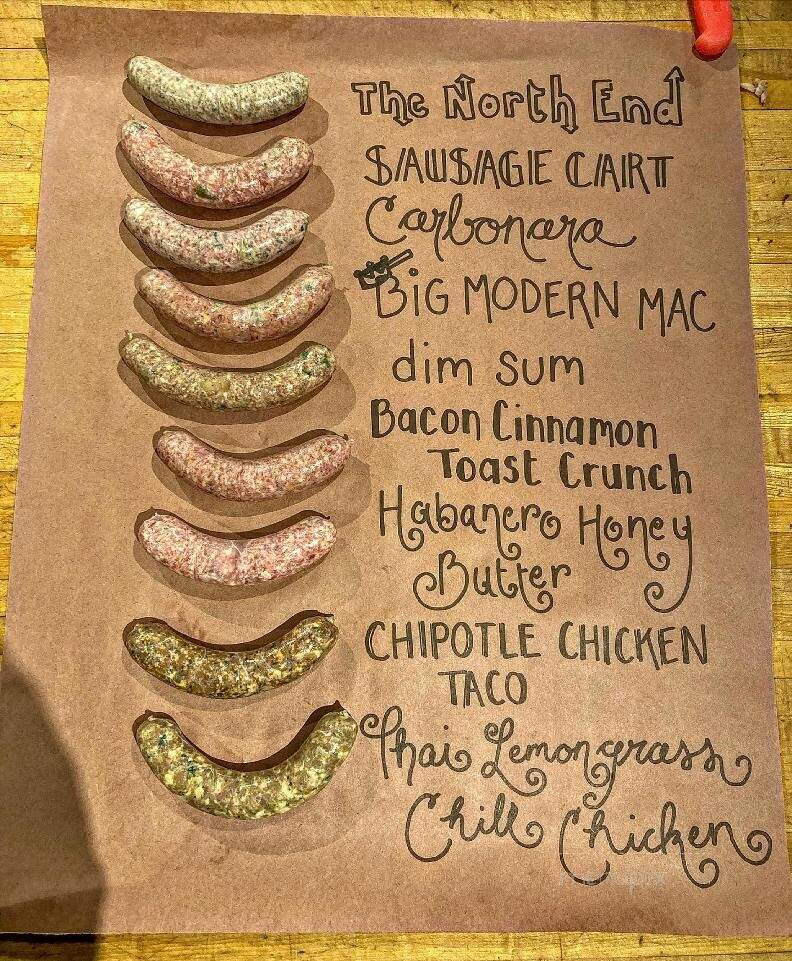 The North End
SAUSAGE CART
Carbonara
BiG MODERN MAC
dim sum
Bacon Cinnamon
Toast Crunch
Habanero Honey
Butter
CHIPOTLE CHICKEN
TACO
Thai Lemongrass
Chili Chicken